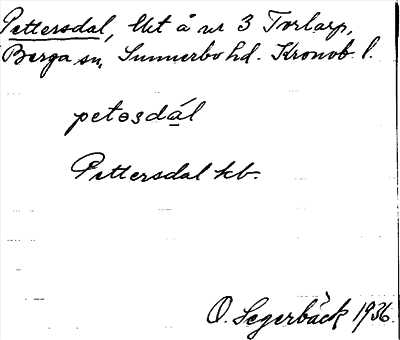 Pettersdal, lht å nr 3 Torlarp,
Berga sn, Sunnerbo hd. Kronob. l.
petɵsdál
Pettersdal kb.
O. Segerbäck 1936.